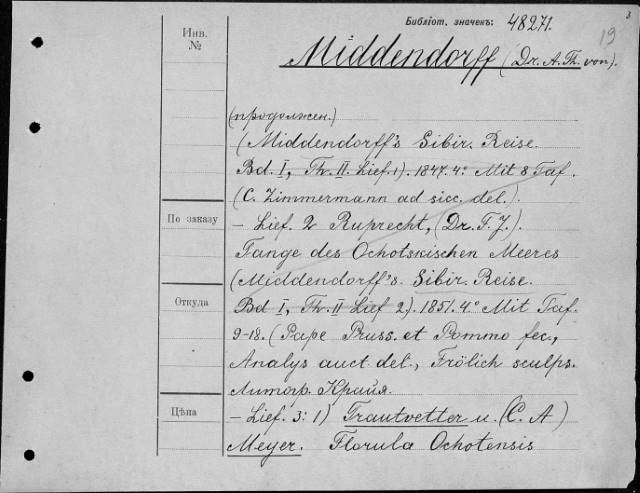 3
Библiот. значекъ: 48271.
19
Инв. №
Middendorff (Dr. A. Th. von).
(продолжен.)
(Middendorff's Sibir. Reise.
Bd. I, Th. II. Lief. 1). 1847. 4° Mit 8 Taf.
(C. Zimmermann ad sicc. del.).
По заказу
– Lief. 2 Ruprecht, (Dr. F. J.).
Tange des Ochotskischen Meeres
(Middendorff's. Sibir. Reise.
Откуда
Bd I, Th. II Lief 2). 1851. 4° Mit Taf.
9-18. (Pape Pruss. et Pommo fec.,
Analys auct del., Frölich sculps.
Литогр. Крайя.
Цѣна
– Lief. 3: 1) Trautvetter u. (C. A)
Meyer. Florula Ochotensis